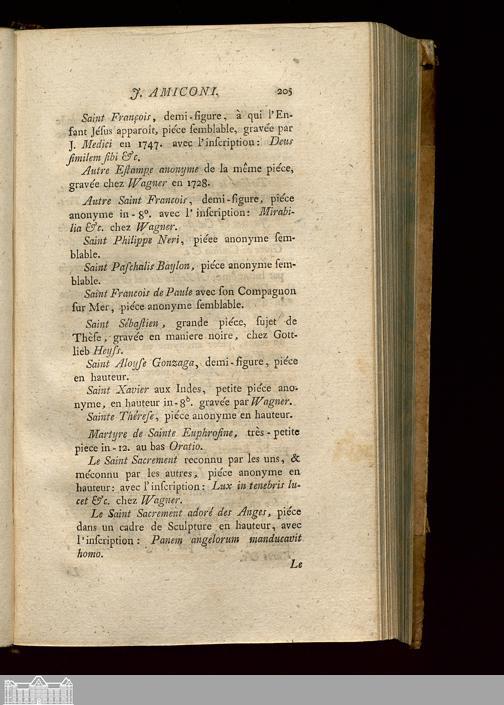 J. AMICONI. 205
Saint François, demi-figure, à qui l'En-
fant Jésus apparoît, piéce semblable, gravée par
J. Medici en 1747. avec l'inscription: Deus
similem sibi &c.
Autre Estampe anonyme de la même piéce,
gravée chez Wagner en 1728.
Autre Saint Francois, demi-figure, piéce
anonyme in-8°. avec l'inscription: Mirabi-
lia &c. chez Wagner.
Saint Philippe Neri, piéee anonyme sem-
blable.
Saint Paschalis Baylon, piéce anonyme sem-
blable.
Saint Francois de Paule avec son Compagnon
sur Mer, piéce anonyme semblable.
Saint Sébastien, grande piéce, sujet de
Thèse, gravée en maniere noire, chez Gott-
lieb Heyss.
Saint Aloyse Gonzaga, demi-figure, piéce
en hauteur.
Saint Xavier aux Indes, petite piéce ano-
nyme, en hauteur in-8°. gravée par Wagner.
Sainte Thérese, piéce anonyme en hauteur.
Martyre de Sainte Euphrosine, très-petite
piece in-12. au bas Oratio.
Le Saint Sacrement reconnu par les uns, &
méconnu par les autres, piéce anonyme en
hauteur: avec l'inscription: Lux in tenebris lu-
cet &c. chez Wagner.
Le Saint Sacrement adoré des Anges, piéce
dans un cadre de Sculpture en hauteur, avec
l'inscription: Panem angelorum manducavit
homo.
Le